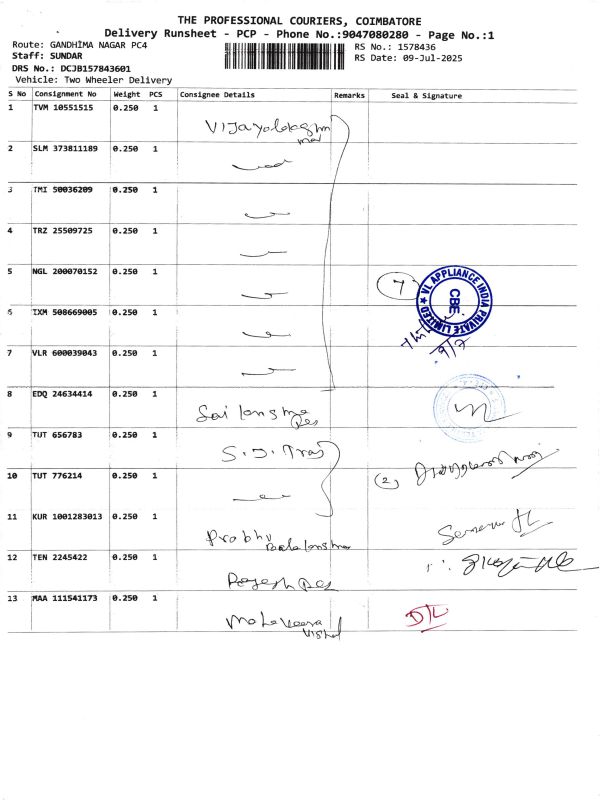 THE PROFESSIONAL COURIERS, COIMBATORE
Delivery Runsheet - PCP - Phone No.:9047080280 - Page No.:1
Route: GANDHIMA NAGAR PC4
RS No.: 1578436
Staff: SUNDAR
RS Date: 09-Jul-2025
DRS No.: DCJB157843601
Vehicle: Two Wheeler Delivery
S No Consignment No Weight PCS Consignee Details Remarks Seal & Signature
1 TVM 10551515 0.250 1
2 SLM 373811189 0.250 1
3 TMI 50036209 0.250 1
4 TRZ 25509725 0.250 1
5 NGL 200070152 0.250 1 7
VL APPLIANCE INDIA PRIVATE LIMITED ★
CBE
6 IXM 508669005 0.250 1
9/7
7 VLR 600039043 0.250 1
8 EDQ 24634414 0.250 1
Sai
9 TUT 656783 0.250 1
10 TUT 776214 0.250 1 (2)
11 KUR 1001283013 0.250 1 Prabhu
12 TEN 2245422 0.250 1
13 MAA 111541173 0.250 1 D/L